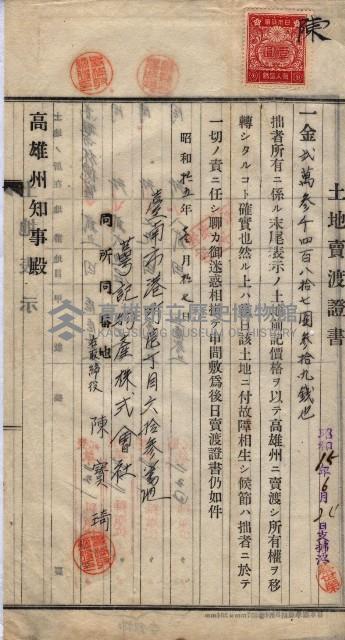 陳
土地賣渡證書
一金貳萬參千四百八拾七圓參拾九錢也
拙者所有ニ係ル末尾表示ノ土地前記價格ヲ以テ高雄州ニ賣渡シ所有權ヲ移
轉シタルコト確實也然ル上ハ後日該土地ニ付故障相生シ候節ハ拙者ニ於テ
一切ノ責ニ任シ聊カ御迷惑相掛ケ申間敷為後日賣渡證書仍如件
昭和拾五年 月拾七日
臺南市港町 丁目六拾參番地
記興產株式會社
同所同番地
取締役 陳寶琦
高雄州知事殿
昭和15年6月26日支拂濟
高雄市立歷史博物館
KAOHSIUNG MUSEUM OF HISTORY